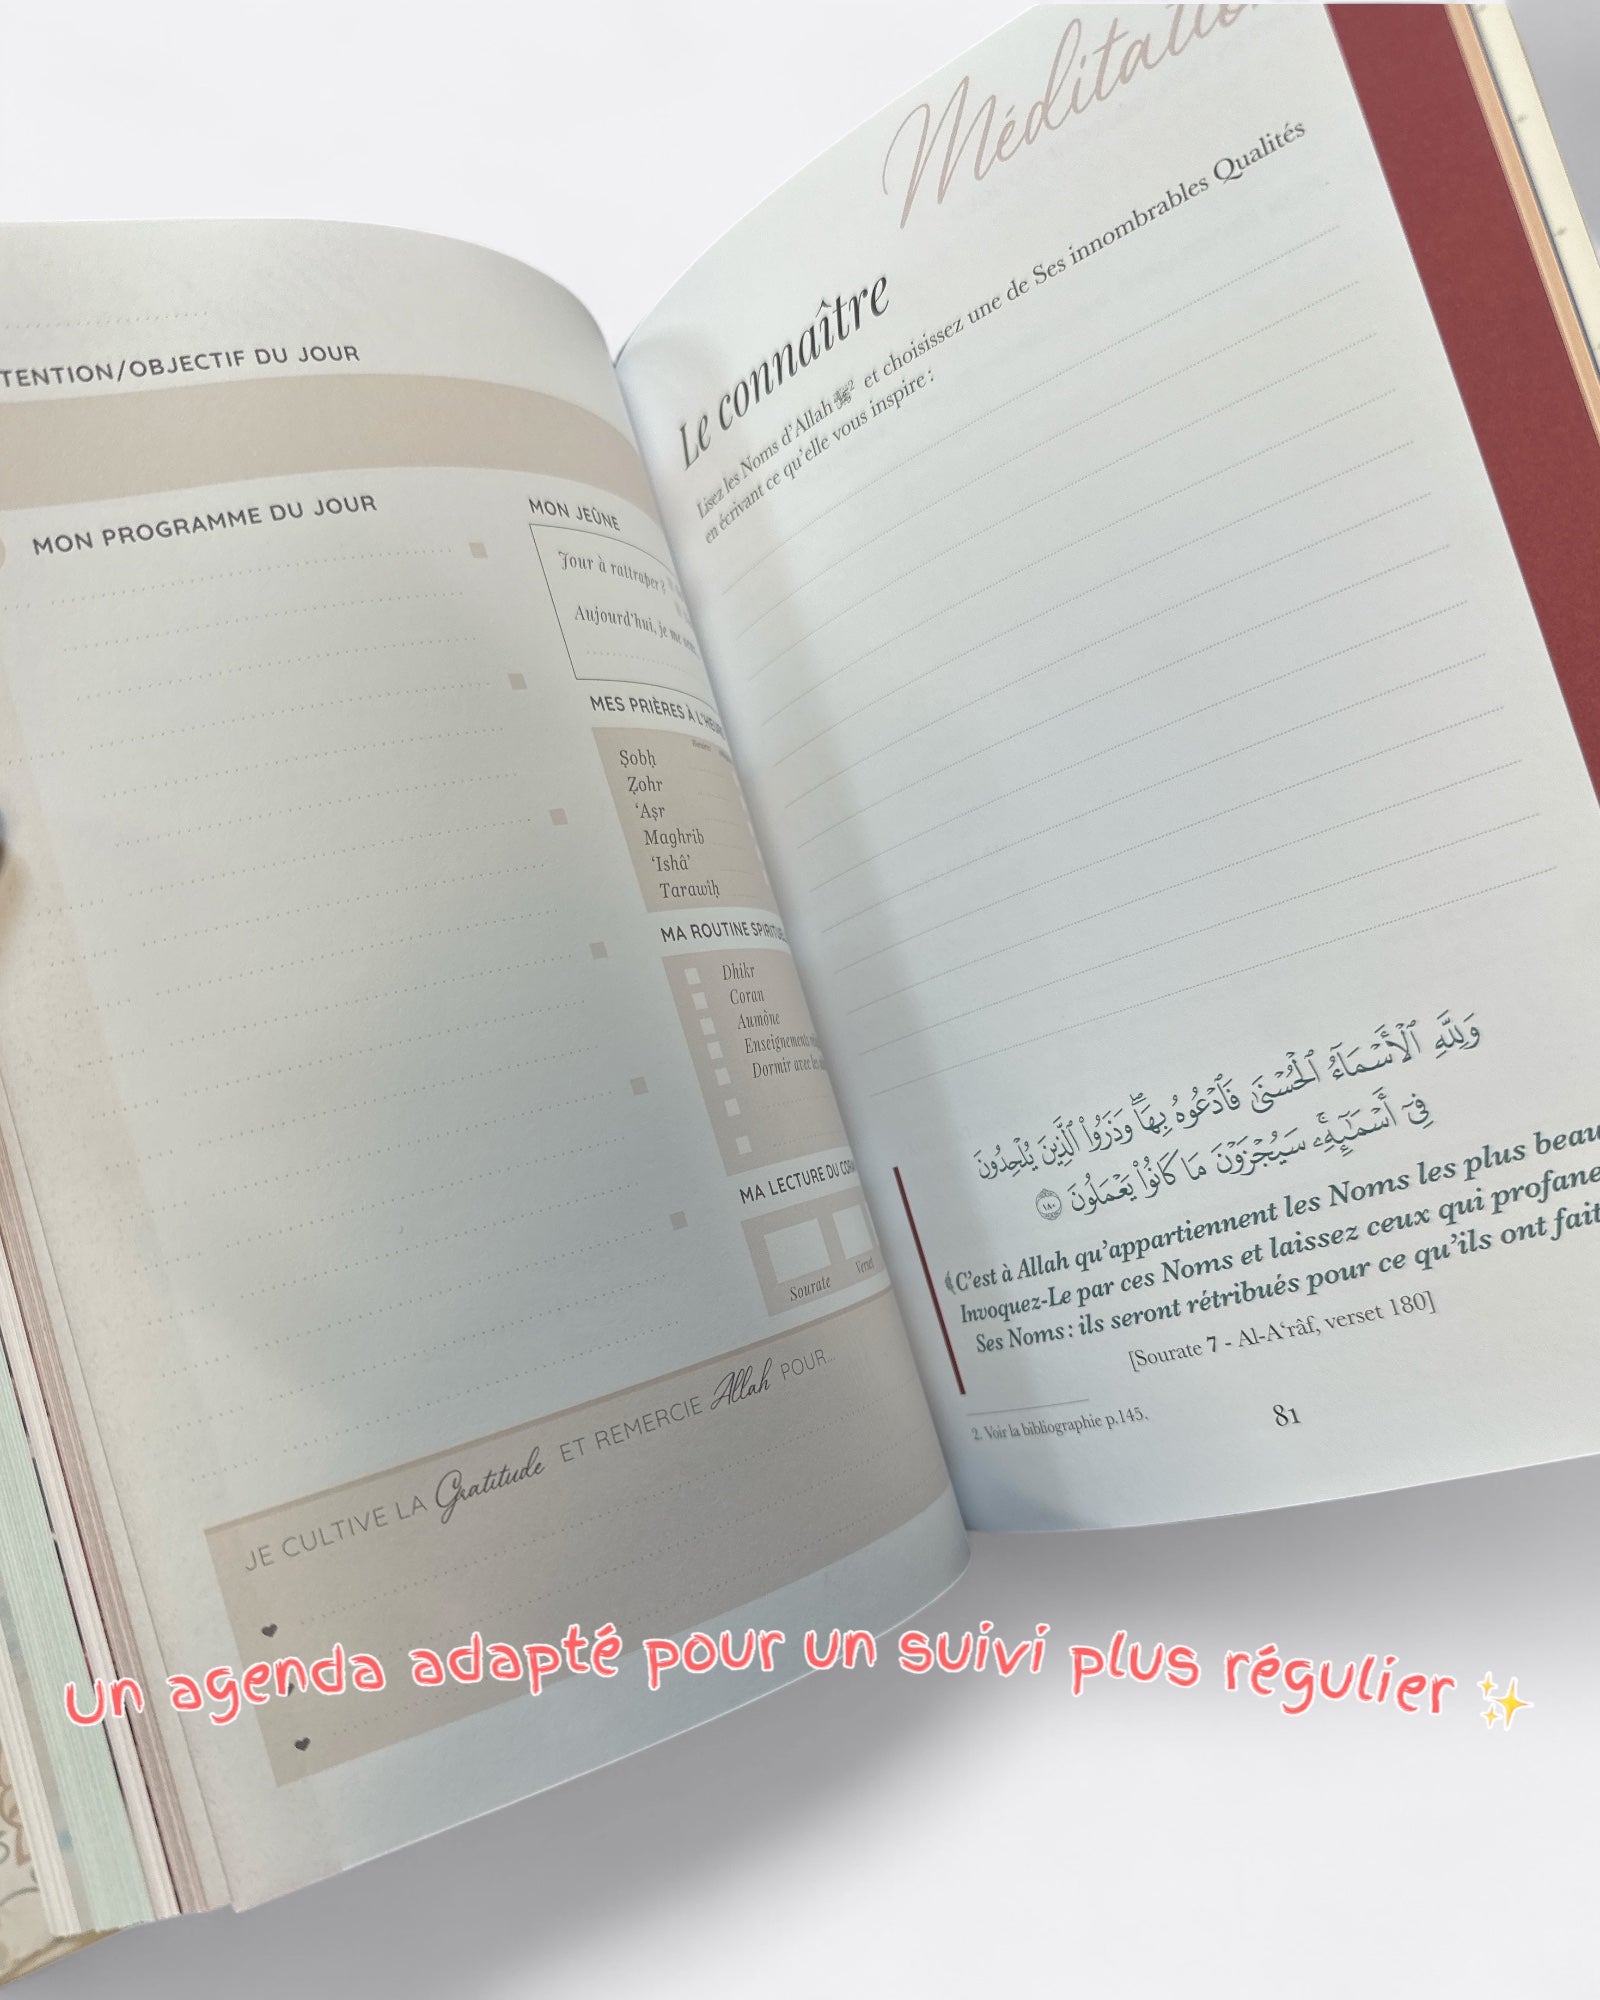 TENTION/OBJECTIF DU JOUR
MON PROGRAMME DU JOUR
MON JEÛNE
Jour à rattraper ?
Aujourd'hui, je me
MES PRIÈRES À
Ṣobḥ
Ẓohr
‘Aṣr
Maghrib
‘Ishâ’
Tarawîḥ
MA ROUTINE
Dhikr
Coran
Aumône
Enseignements
Dormir avec les
MA LECTURE DU
Sourate
Verset
JE CULTIVE LA Gratitude ET REMERCIE Allah POUR...
Méditation
Le connaître
Lisez les Noms d'Allah ﷻ² et choisissez une de Ses innombrables Qualités
en écrivant ce qu'elle vous inspire :
وَلِلَّهِ ٱلْأَسْمَآءُ ٱلْحُسْنَىٰ فَٱدْعُوهُ بِهَا ۖ وَذَرُوا۟ ٱلَّذِينَ يُلْحِدُونَ
فِىٓ أَسْمَٰٓئِهِۦ ۚ سَيُجْزَوْنَ مَا كَانُوا۟ يَعْمَلُونَ ١٨٠
﴾C'est à Allah qu'appartiennent les Noms les plus beau
Invoquez-Le par ces Noms et laissez ceux qui profane
Ses Noms : ils seront rétribués pour ce qu'ils ont fait
[Sourate 7 - Al-A‘râf, verset 180]
2. Voir la bibliographie p.145.
81
un agenda adapté pour un suivi plus régulier ✨